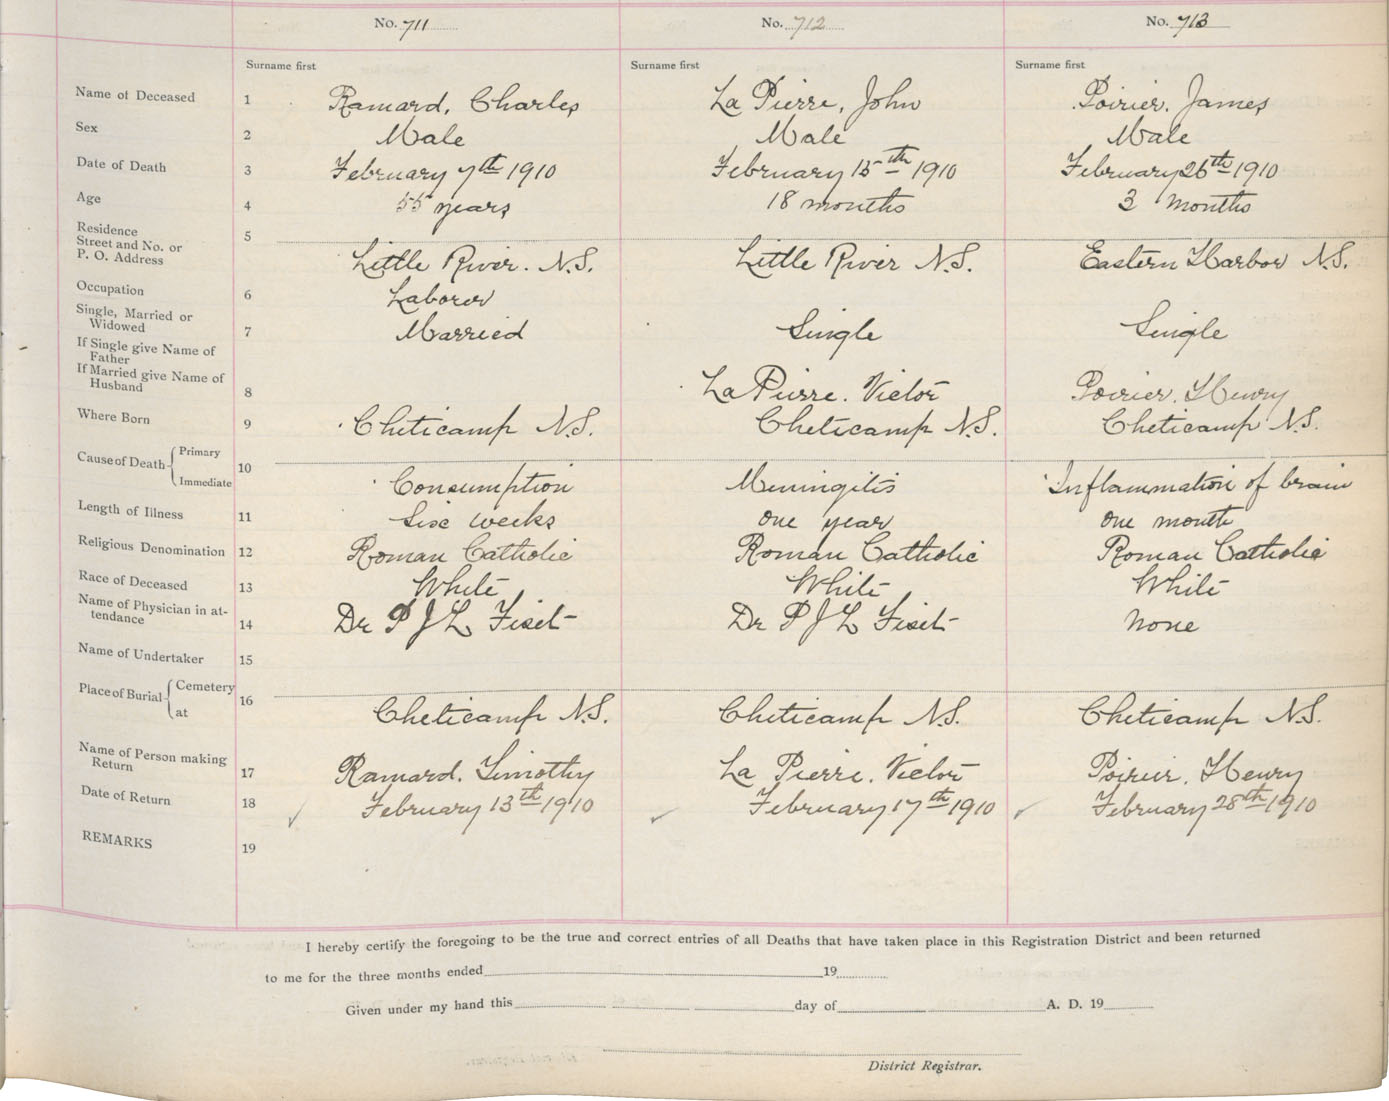 No. 711 No. 712 No. 713
Surname first Surname first Surname first
Name of Deceased 1 Ramard, Charles La Pierre, John Poirier, James
Sex 2 Male Male Male
Date of Death 3 February 7th 1910 February 15th 1910 February 26th 1910
Age 4 55 years 18 months 3 months
Residence
Street and No. or
P. O. Address 5 Little River. N.S. Little River N.S. Eastern Harbor N.S.
Occupation 6 Laborer
Single, Married or
Widowed 7 Married Single Single
If Single give Name of
Father
If Married give Name of
Husband 8 La Pierre. Victor Poirier. Henry
Where Born 9 Cheticamp N.S. Cheticamp N.S. Cheticamp N.S.
Cause of Death { Primary
Immediate 10 Consumption Meningitis Inflammation of brain
Length of Illness 11 Six weeks one year one month
Religious Denomination 12 Roman Catholic Roman Catholic Roman Catholic
Race of Deceased 13 White White White
Name of Physician in at-
tendance 14 Dr P J L Fiset Dr P J L Fiset none
Name of Undertaker 15
Place of Burial { Cemetery
at 16 Cheticamp N.S. Cheticamp N.S. Cheticamp N.S.
Name of Person making
Return 17 Ramard. Timothy La Pierre. Victor Poirier. Henry
Date of Return 18 February 13th 1910 February 17th 1910 February 28th 1910
REMARKS 19
I hereby certify the foregoing to be the true and correct entries of all Deaths that have taken place in this Registration District and been returned
to me for the three months ended 19
Given under my hand this day of A. D. 19
District Registrar.